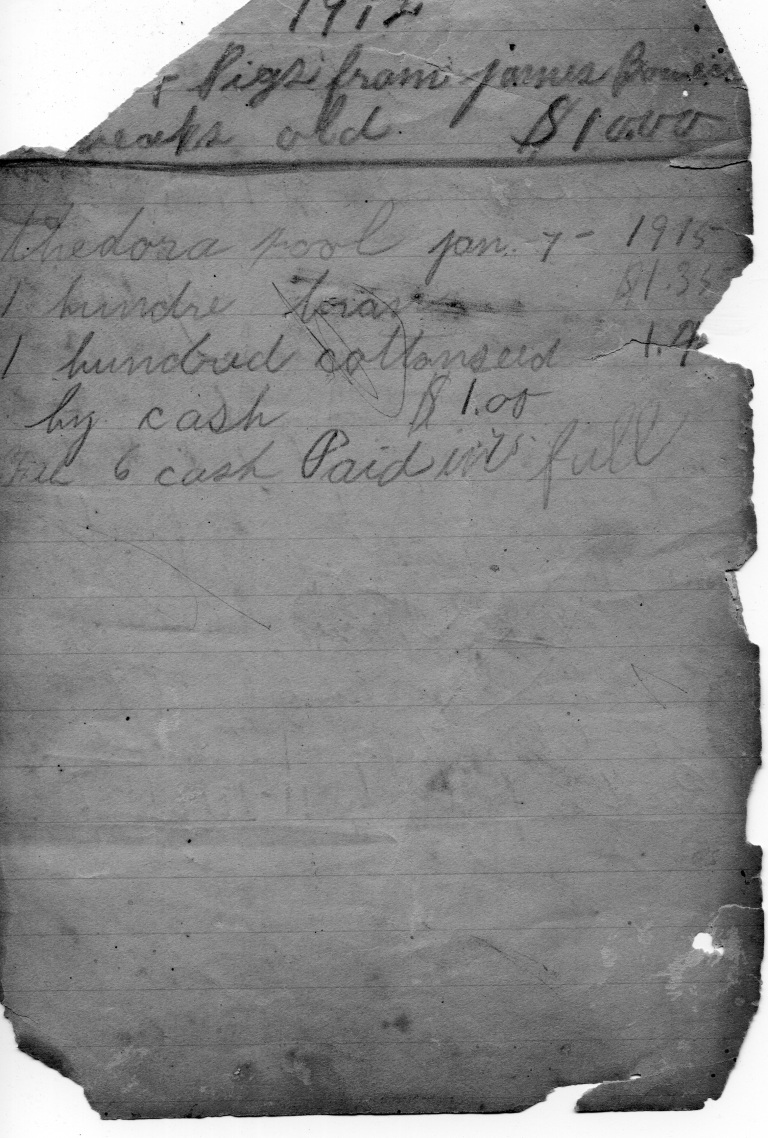 1912
Pigs from james
weaks old $10.00
thedora pool jan. 7- 1915
1 hundre $1.35
1 hundrad cottonseed
by cash $1.00
6 cash Paid in full